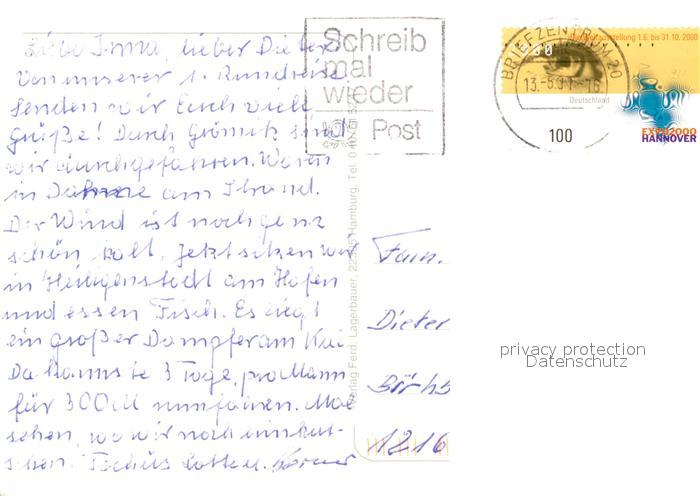 Liebe Irma, lieber Dieter
Von unserer 1. Rundreise
senden wir Euch viele
Grüße! Durch Grömitz sind
wir durchgefahren. Waren
in Dahme am Strand.
Der Wind ist noch ganz
schön kalt. Jetzt sitzen wir
in Heiligenstadt am Hafen
und essen Fisch. Es liegt
ein großer Dampfer am Kai.
Da kannste 3 Tage, pro Mann
für 300M mitfahren. Mal
sehen, wo wir noch einkut-
schen. Tschüs Lotte u.
Schreib
mal
wieder
Post
BRIEFZENTRUM 20
100
1.6. bis 31.10. 2000
Deutschland
EXPO2000
HANNOVER
Verlag Ferd. Lagerbauer, Hamburg, Tel.
Fam.
Dieter
1216
privacy protection
Datenschutz